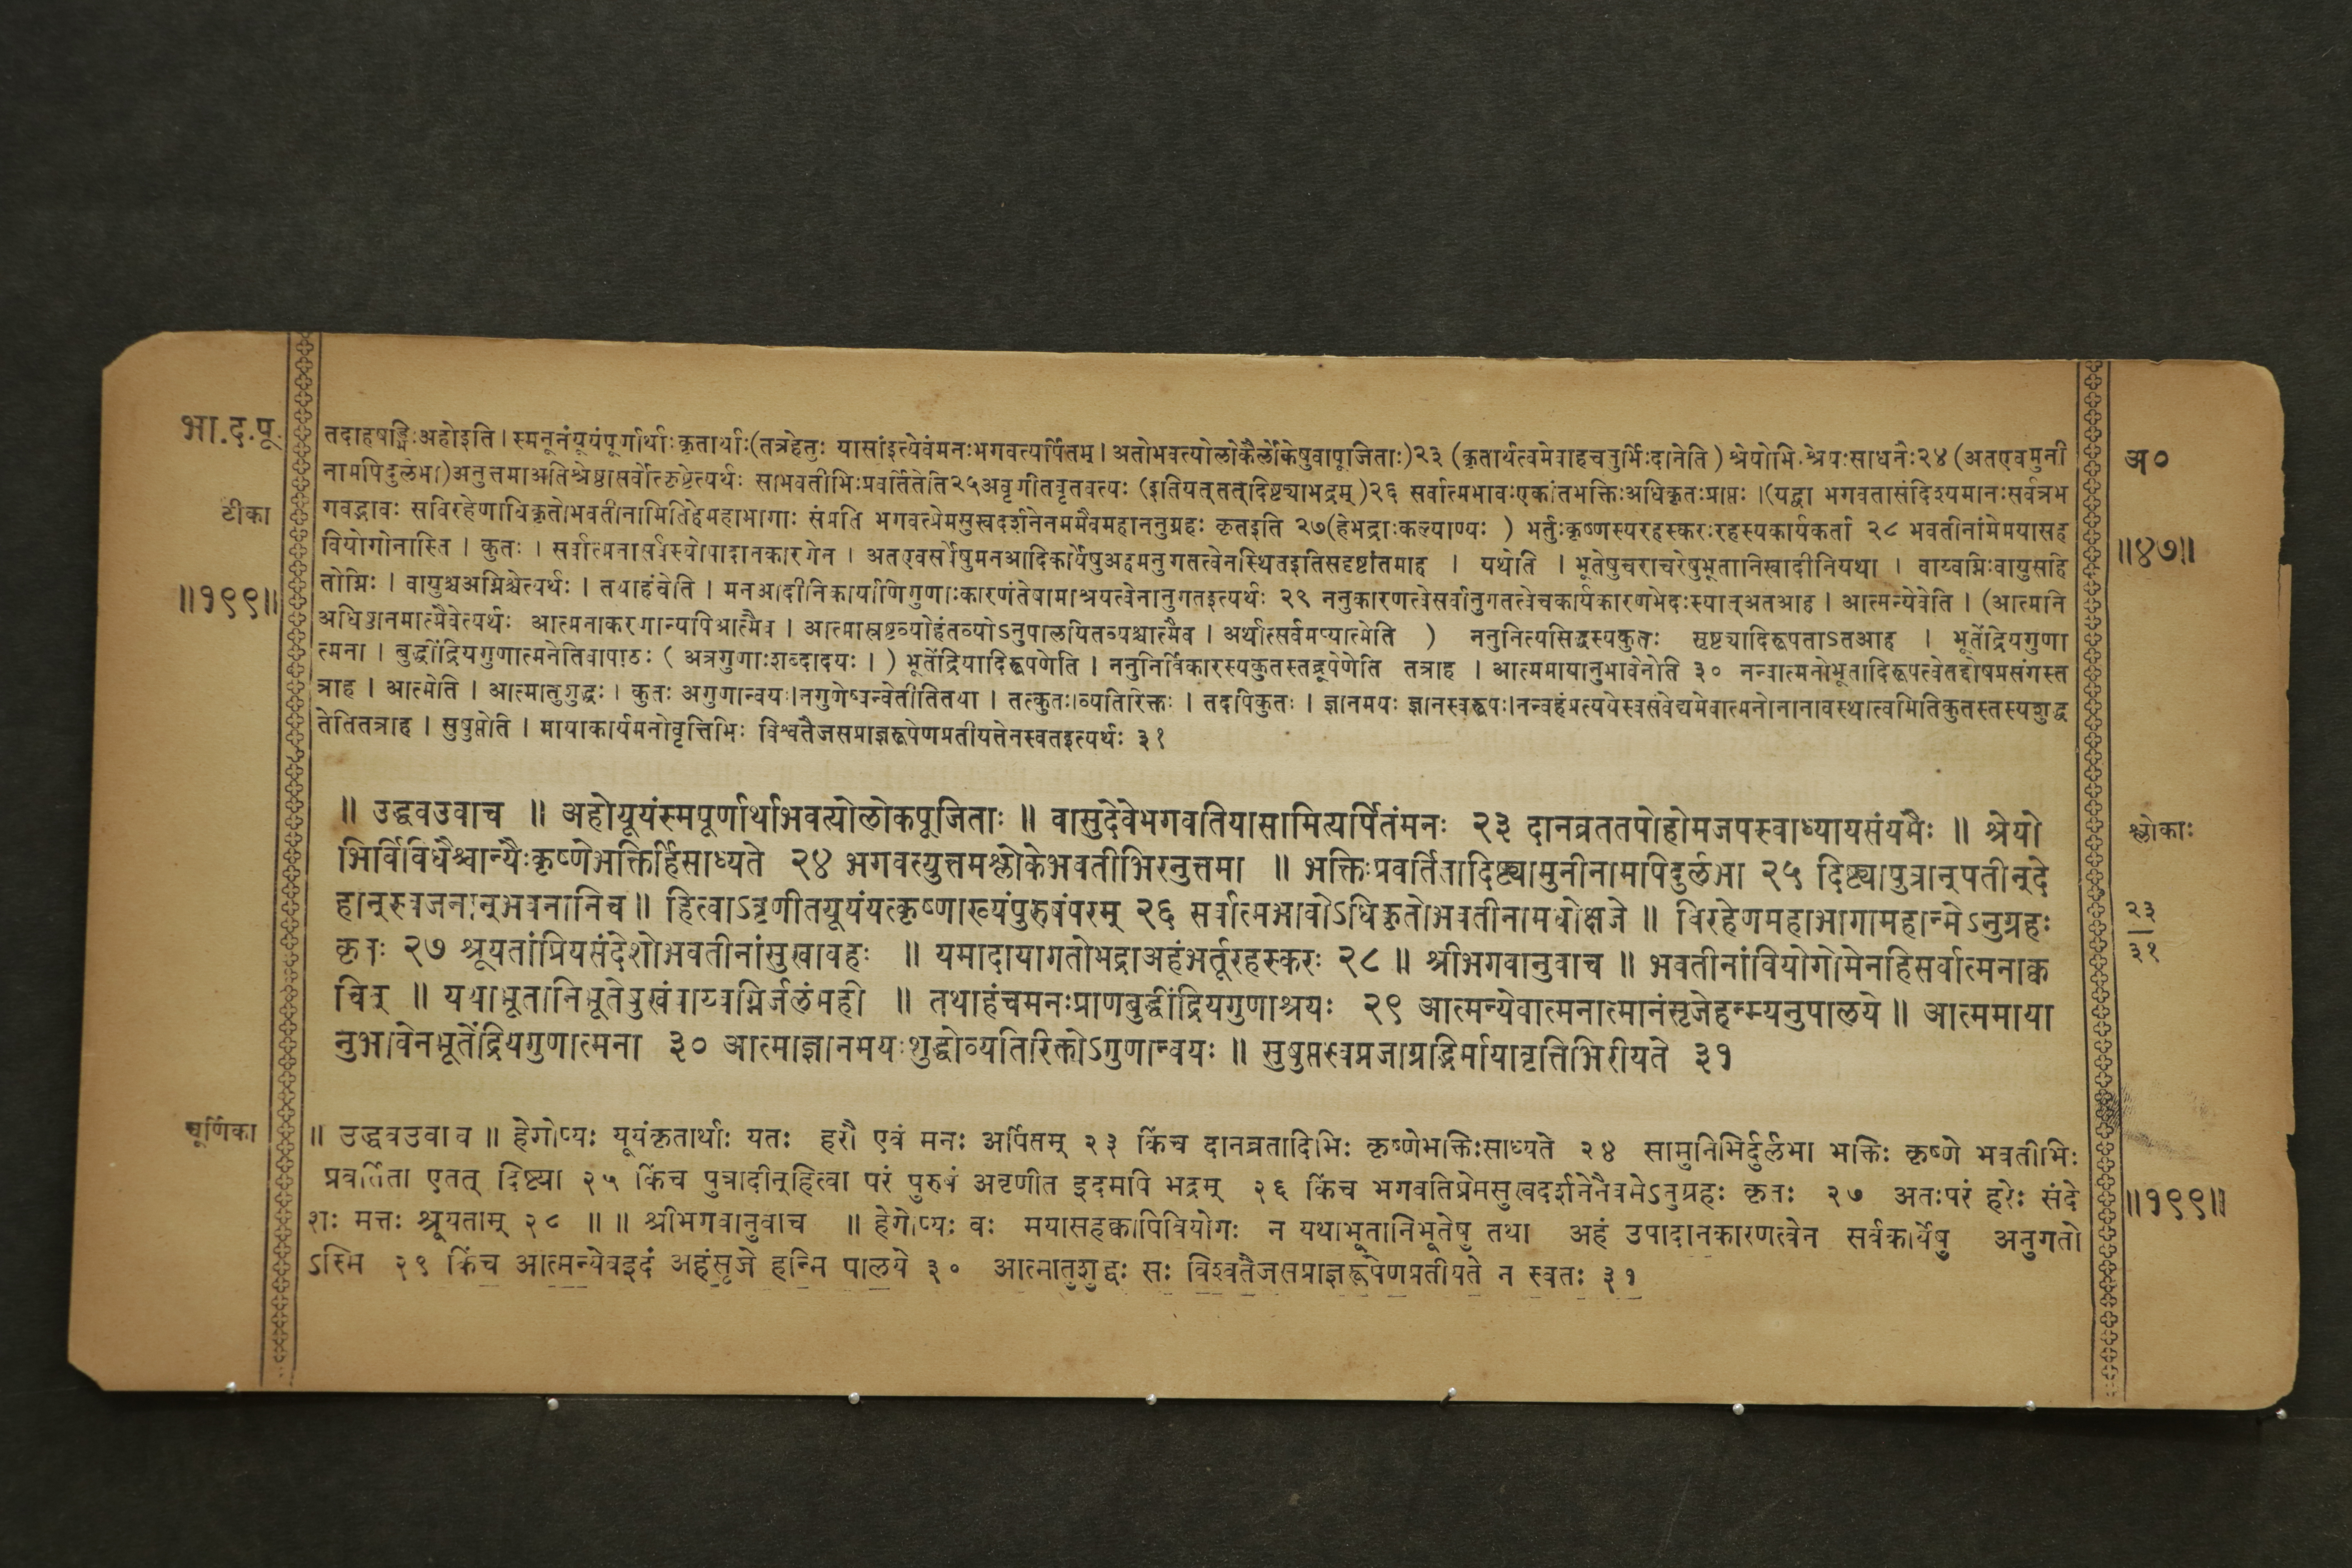 भा.द.पू.
तदाहषड्भिःअहोइति । स्मनूनंयूयंपूर्णार्थाःकृतार्थाः(तत्रहेतुः यासांइत्येवंमनःभगवत्यर्पितम् । अतोभवत्योलोकैर्लोकेषुवापूजिताः)२३ (कृतार्थत्वमेवाहचतुर्भिःदानेति ) श्रेयोभिःश्रेयःसाधनैः२४ (अतएवमुनी
अ०
नामपिदुर्लभा)अनुत्तमाअतिश्रेष्ठासर्वोत्कृष्टेत्यर्थः साभवतीभिःप्रवर्तितेति२५अवृणीतवृतवत्यः (इतियत्तत्दिष्ट्याभद्रम् )२६ सर्वात्मभावःएकांतभक्तिःअधिकृतःप्राप्तः ।(यद्वा भगवतासंदिश्यमानःसर्वत्रभ
टीका
गवद्भावः सविरहेणाधिकृतोभवतीनामितिहेमहाभागाः संप्रति भगवत्प्रेमसुखदर्शनेनममैवमहाननुग्रहः कृतइति २७(हेभद्राःकल्याण्यः ) भर्तुःकृष्णस्यरहस्करःरहस्यकार्यकर्ता २८ भवतीनांमेमयासह
॥४७॥
वियोगोनास्ति । कुतः । सर्वात्मनासर्वस्योपादानकारणेन । अतएवसर्वेषुमनआदिकार्येषुअहमनुगतत्वेनस्थितइतिसदृष्टांतमाह । यथेति । भूतेषुचराचरेषुभूतानिखादीनियथा । वाय्वग्निःवायुसहि
॥१९९॥
तोग्निः । वायुश्चअग्निश्चेत्यर्थः । तथाहंचेति । मनआदीनिकार्याणिगुणाःकारणंतेषामाश्रयत्वेनानुगतइत्यर्थः २९ ननुकारणत्वेसर्वानुगतत्वेचकार्यकारणभेदःस्यात्अतआह । आत्मन्येवेति । (आत्मनि
अधिष्ठानमात्मैवेत्यर्थः आत्मनाकरणान्यपिआत्मैव । आत्मास्रष्टव्योहंतव्योऽनुपालयितव्यश्चात्मैव । अर्थात्सर्वमप्यात्मेति ) ननुनित्यसिद्धस्यकुतः सृष्ट्यादिरूपताऽतआह । भूतेंद्रियगुणा
त्मना । बुद्धींद्रियगुणात्मनेतिवापाठः ( अत्रगुणाःशब्दादयः । ) भूतेंद्रियादिरूपणेति । ननुनिर्विकारस्यकुतस्तद्रूपेणेति तत्राह । आत्ममायानुभावेनेति ३० नन्वात्मनोभूतादिरूपत्वेतद्दोषप्रसंगस्त
त्राह । आत्मेति । आत्मातुशुद्धः । कुतः अगुणान्वयः।नगुणेष्वन्वेतीतितथा । तत्कुतः।व्यतिरिक्तः । तदपिकुतः । ज्ञानमयः ज्ञानस्वरूपः।नन्वहंप्रत्ययेस्वसंवेद्यमेवात्मनोनानावस्थात्वमितिकुतस्तस्यशुद्ध
तेतितत्राह । सुषुप्तेति । मायाकार्यमनोवृत्तिभिः विश्वतैजसप्राज्ञरूपेणप्रतीयतेनस्वतइत्यर्थः ३१
॥ उद्धवउवाच ॥ अहोयूयंस्मपूर्णार्थाभवत्योलोकपूजिताः ॥ वासुदेवेभगवतियासामित्यर्पितंमनः २३ दानव्रततपोहोमजपस्वाध्यायसंयमैः ॥ श्रेयो
श्लोकाः
भिर्विविधैश्चान्यैःकृष्णेभक्तिर्हिसाध्यते २४ भगवत्युत्तमश्लोकेभवतीभिरनुत्तमा ॥ भक्तिःप्रवर्तितादिष्ट्यामुनीनामपिदुर्लभा २५ दिष्ट्यापुत्रान्पतीन्दे
हान्स्वजनान्भवनानिच ॥ हित्वाऽवृणीतयूयंयत्कृष्णाख्यंपुरुषंपरम् २६ सर्वात्मभावोऽधिकृतोभवतीनामधोक्षजे ॥ विरहेणमहाभागामहान्मेऽनुग्रहः
२३
३१
कृतः २७ श्रूयतांप्रियसंदेशोभवतीनांसुखावहः ॥ यमादायागतोभद्राअहंभर्तूरहस्करः २८ ॥ श्रीभगवानुवाच ॥ भवतीनांवियोगोमेनहिसर्वात्मनाक्व
चित् ॥ यथाभूतानिभूतेषुखंवाय्वग्निर्जलंमही ॥ तथाहंचमनःप्राणबुद्धींद्रियगुणाश्रयः २९ आत्मन्येवात्मनात्मानंसृजेहन्म्यनुपालये ॥ आत्ममाया
नुभावेनभूतेंद्रियगुणात्मना ३० आत्माज्ञानमयःशुद्धोव्यतिरिक्तोऽगुणान्वयः ॥ सुषुप्तस्वप्नजाग्रद्भिर्मायावृत्तिभिरीयते ३१
चूर्णिका
॥ उद्धवउवाच ॥ हेगोप्यः यूयंकृतार्थाः यतः हरौ एवं मनः अर्पितम् २३ किंच दानव्रतादिभिः कृष्णेभक्तिःसाध्यते २४ सामुनिभिर्दुर्लभा भक्तिः कृष्णे भवतीभिः
प्रवर्तिता एतत् दिष्ट्या २५ किंच पुत्रादीन्हित्वा परं पुरुषं अवृणीत इदमपि भद्रम् २६ किंच भगवतिप्रेमसुखदर्शनेनैवमेऽनुग्रहः कृतः २७ अतःपरं हरेः संदे
॥१९९॥
शः मत्तः श्रूयताम् २८ ॥ ॥ श्रीभगवानुवाच ॥ हेगोप्यः वः मयासहक्वापिवियोगः न यथाभूतानिभूतेषु तथा अहं उपादानकारणत्वेन सर्वकार्येषु अनुगतो
ऽस्मि २९ किंच आत्मन्येवइदं अहंसृजे हन्मि पालये ३० आत्मातुशुद्धः सः विश्वतैजसप्राज्ञरूपेणप्रतीयते न स्वतः ३१